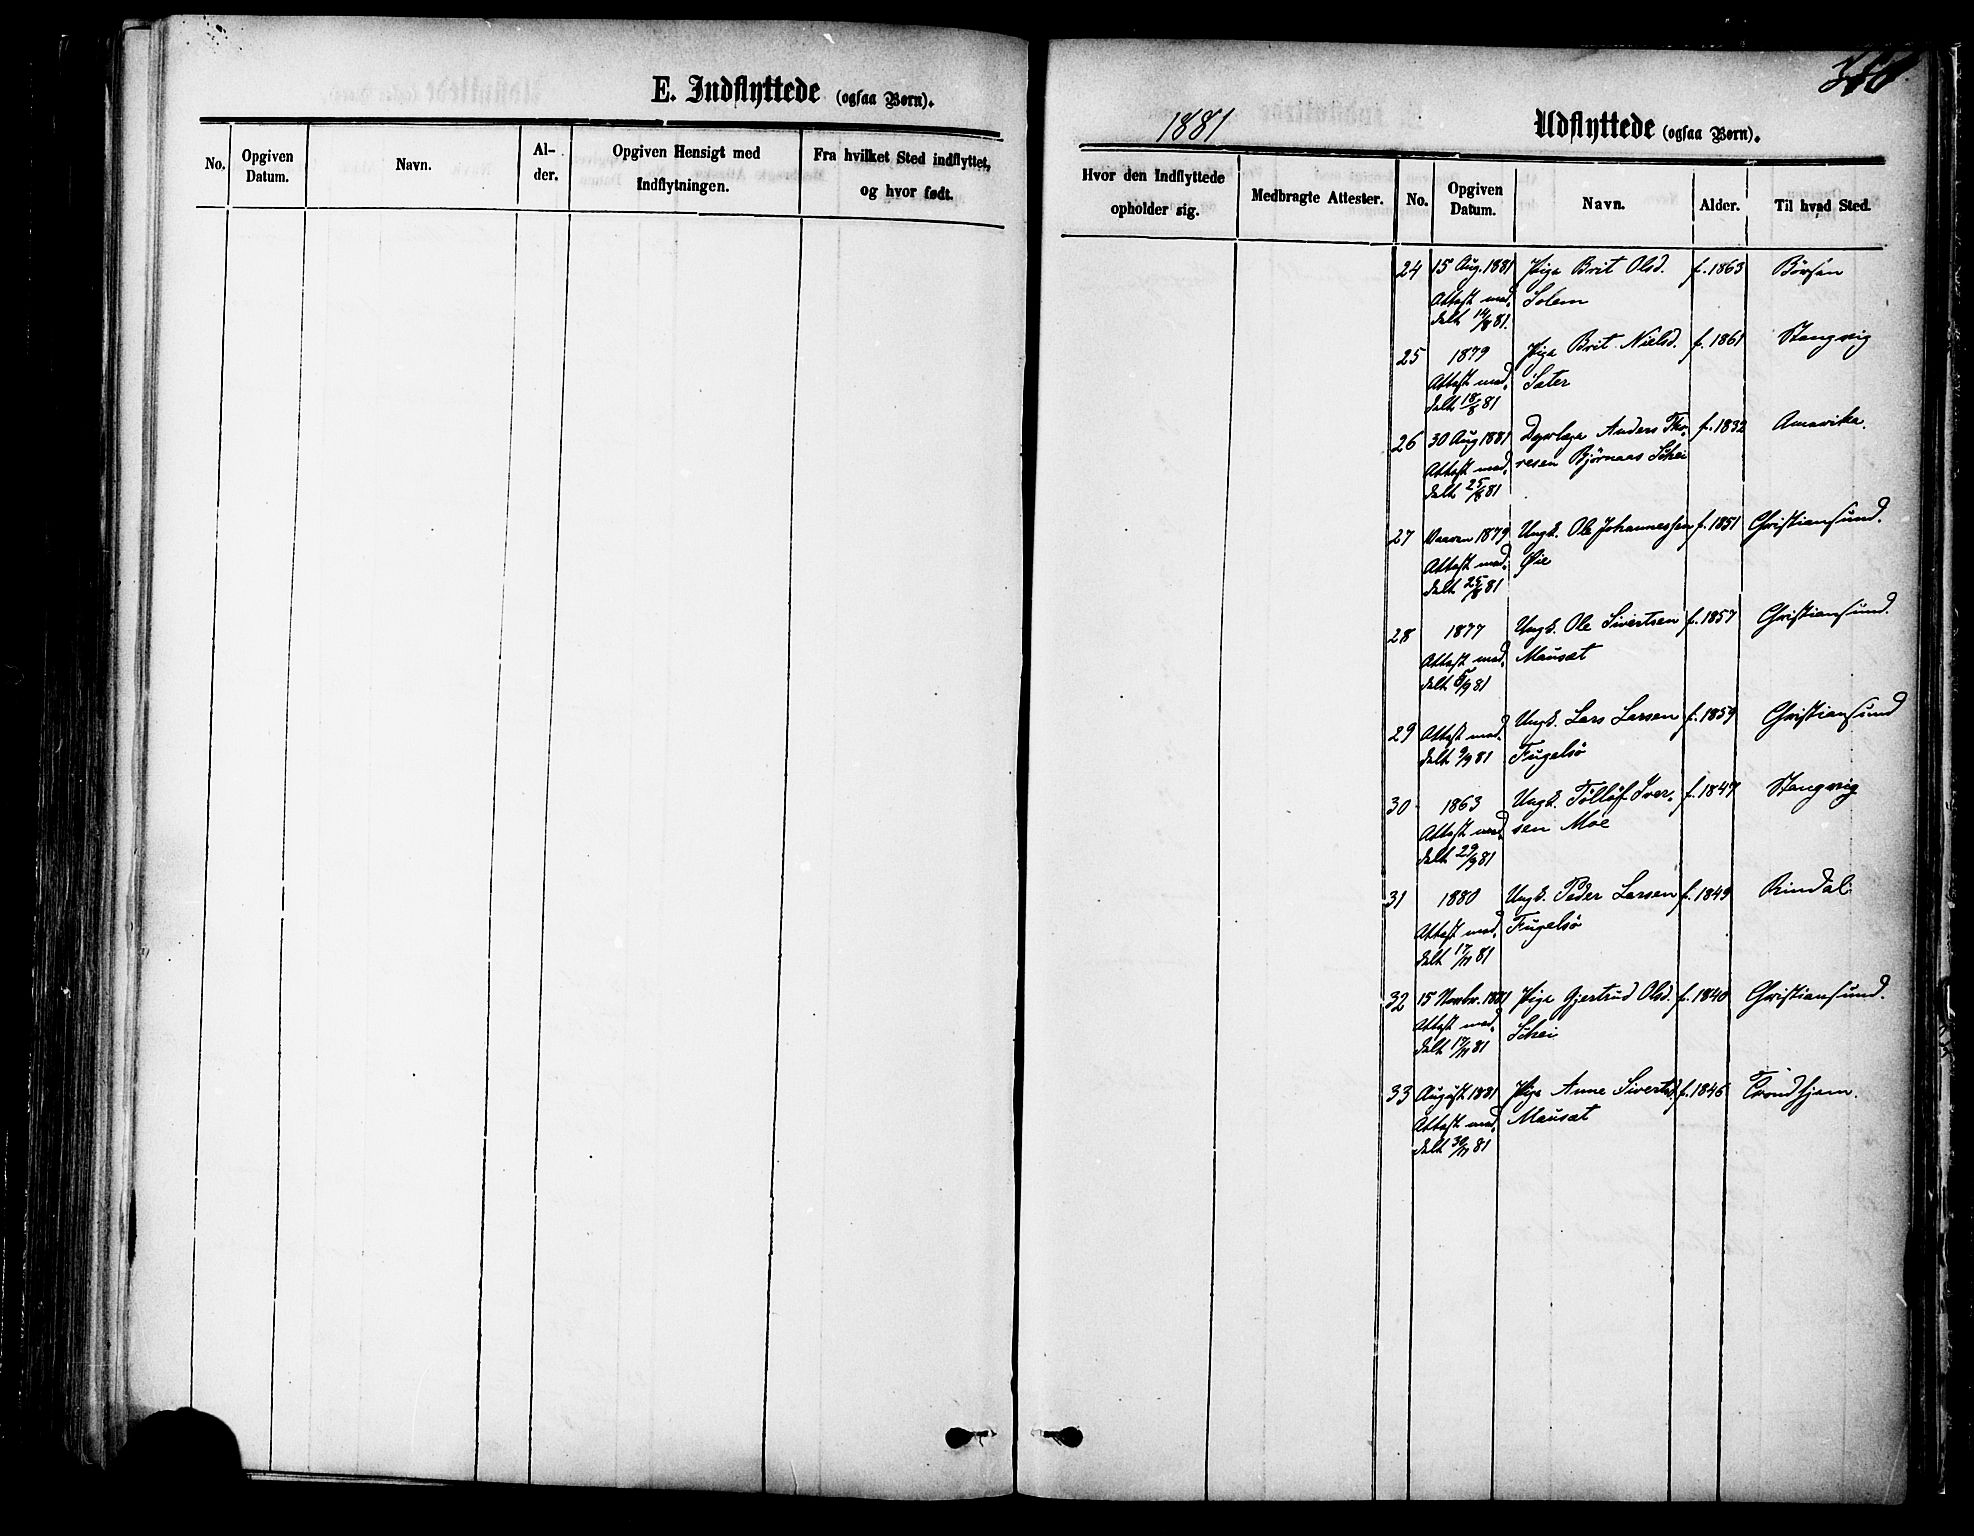 E. Indflyttede (ogsaa Børn).
No.
Opgiven Datum.
Navn.
Al-
der.
Opgiven Hensigt med
Indflytningen.
Fra hvilket Sted indflyttet,
og hvor født.
1881
Udflyttede (ogsaa Børn).
Hvor den Indflyttede
opholder sig.
Medbragte Attester.
No.
Opgiven Datum.
Navn.
Alder.
Til hvad Sted.
24 15 Aug. 1881 Pige Brit Olsd. f. 1863 Börsen
Attest med- Solem
delt 14/8 81.
25 1879 Pige Brit Nielsd. f. 1861 Stangvig
Attest med- Sæter
delt 18/8 81
26 30 Aug 1881 Dyrlæge Anders Tho- f. 1832 Amerika.
Attest med- resen Björnaas Schei
delt 25/8 81
27 Vaaren 1879 Ungk. Ole Johannessen f. 1851 Christiansund.
Attest med- Øie
delt 25/8 81
28 1877 Ungk. Ole Sivertsen f. 1857 Christiansund.
Attest med- Mauset
delt 5/9 81
29 Attest med- Ungk. Lars Larsen f. 1859 Christiansund
delt 9/9 81 Fugelsö
30 1863 Ungk. Tölløf Iver- f. 1847 Stangvig
Attest med- sen Moe
delt 29/9 81
31 1880 Ungk. Peder Larsen f. 1849 Rindal
Attest med- Fugelsö
delt 17/11 81
32 15 Novbr. 1881 Pige Gjertrud Olsd. f. 1840 Christiansund.
Attest med- Schei
delt 17/11 81
33 August 1881 Pige Anne Sivertsd. f. 1846 Trondhjem.
Attest med- Mauset
delt 30/11 81